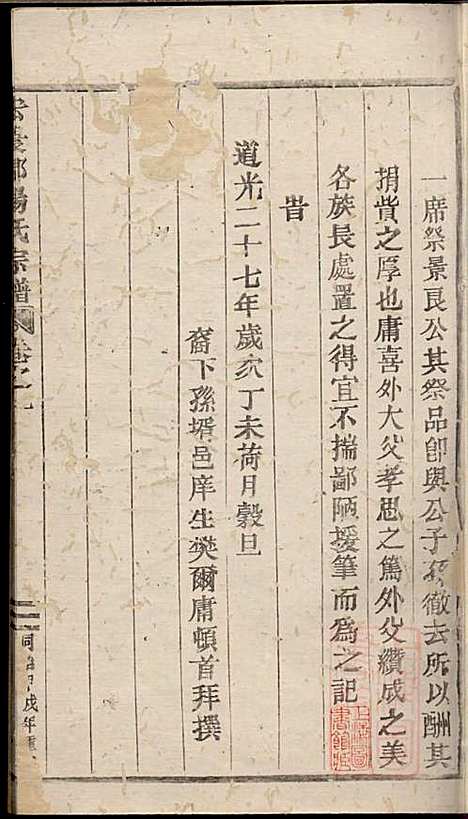 一席祭景良公其祭品卽與公子孫徹去所以酬其
捐貲之厚也庸喜外大父孝思之篤外父纘成之美
各族長處置之得宜不揣鄙陋援筆而為之記
旹
道光二十七年歲次丁未荷月穀旦
裔下孫壻邑庠生樊爾庸頓首拜撰
楊氏宗譜 卷之
同治甲戌年重
上海圖書館藏